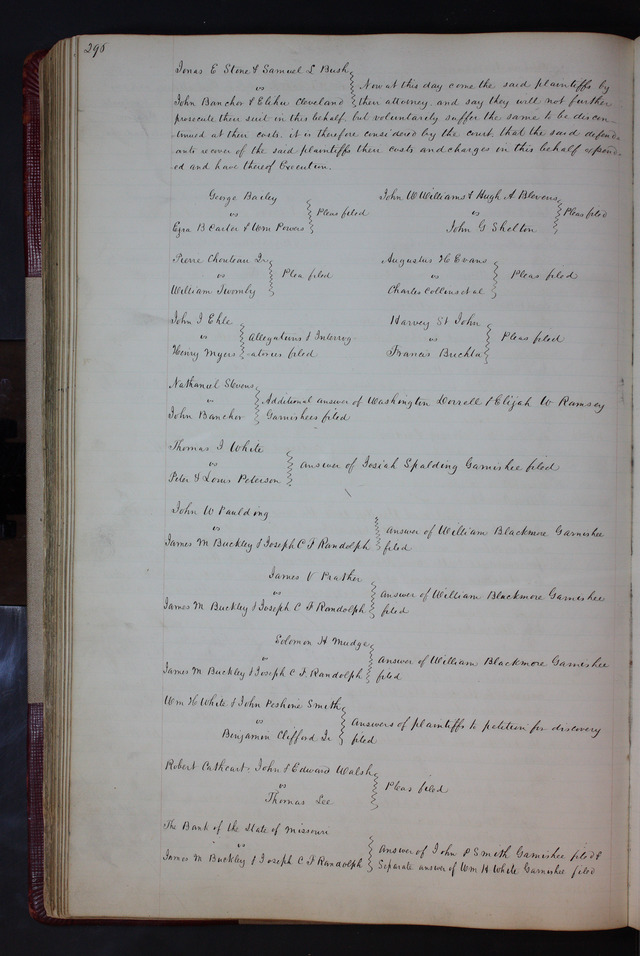 296
Jonas E Stone & Samuel L Bush
vs
Now at this day come the said plaintiffs by
John Bancher & Elihu Cleveland their attorney, and say they will not further
prosecute their suit in this behalf but voluntarily suffer the same to be discon
tinued at their costs. it is therefore considered by the court that the said defend
ants recover of the said plaintiffs their costs and charges in this behalf expend
ed and have thereof Execution.
George Bailey
vs
Ezra B Carter & Wm Powers
Pleas filed
John W Williams & Hugh A Blevens
vs
John G Shelton
Pleas filed
Pierre Chouteau Jr
vs
William Twombly
Plea filed
Augustus H Evans
vs
Charles Collins et al
Pleas filed
John I Ehle
vs
Henry Myers
Allegations & Interrog
atories filed
Harvey St John
vs
Francis Buchta
Pleas filed
Nathaniel Stevens
vs
John Bancher
Additional answer of Washington Dorrell & Elijah W Ramsey
Garnishees filed
Thomas J White
vs
Peter & Louis Peterson
Answer of Josiah Spalding Garnishee filed
John W Paulding
vs
James M Buckley & Joseph C F Randolph
Answer of William Blackmore Garnishee
filed
James V Prather
vs
James M Buckley & Joseph C F Randolph
Answer of William Blackmore Garnishee
filed
Solomon H Mudge
vs
James M Buckley & Joseph C F Randolph
Answer of William Blackmore Garnishee
filed
Wm H White & John Peshine Smith
vs
Benjamin Clifford Jr
Answers of plaintiffs to petition for discovery
filed
Robert Cathcart, John & Edward Walsh
vs
Thomas Lee
Pleas filed
The Bank of the State of Missouri
vs
James M Buckley & Joseph C F Randolph
Answer of John P Smith Garnishee filed &
Separate answer of Wm H White Garnishee filed